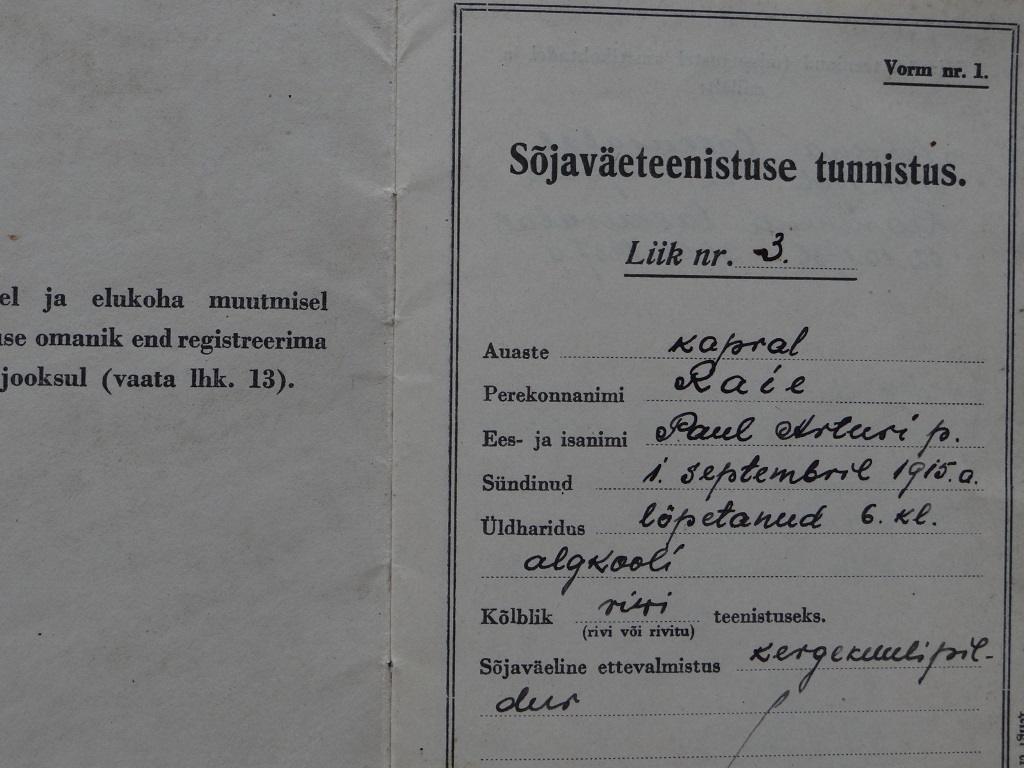 ja elukoha muutmisel
omanik end registreerima
jooksul (vaata lhk. 13).
Vorm nr. 1.
Sõjaväeteenistuse tunnistus.
Liik nr. 3.
Auaste kapral
Perekonnanimi Raie
Ees- ja isanimi Paul Arturi p.
Sündinud 1. septembril 1915. a.
Üldharidus lõpetanud 6. kl.
algkooli
Kõlblik rivi teenistuseks.
(rivi või rivitu)
Sõjaväeline ettevalmistus kergekuulipil-
dur